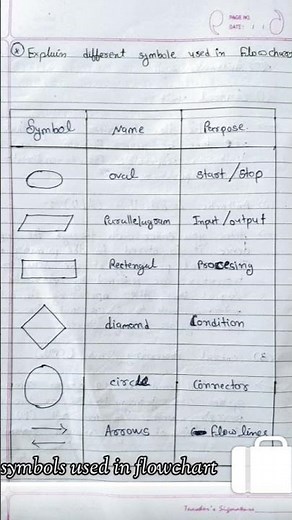 PAGE NO.
DATE: / /
Explain different symbole used in Flowchar
Symbol Name Perpose
oval Start/Stop
Parallelugram Input/output
Rectengal Processing
diamond Condition
circle Connector
Arrows Flow lines
symbols used in flowchart
Teacher's Signature